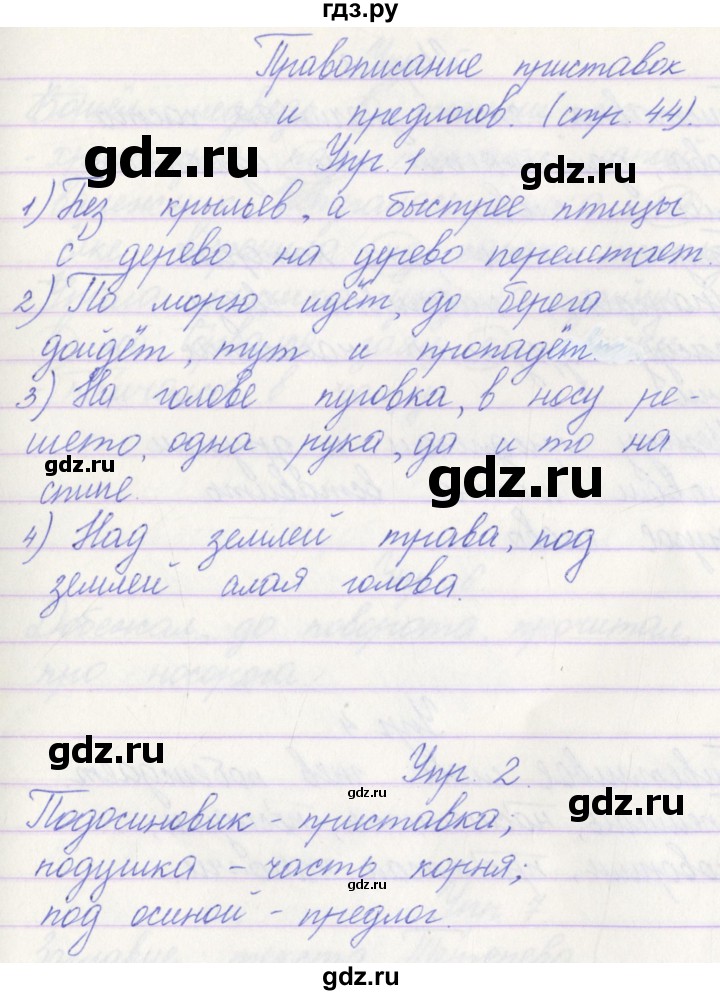 гдз.ру
Правописание приставок
и предлогов. (стр. 44).
gdz.ru
gdz.ru
Упр. 1
1) Без крыльев, а быстрее птицы
с дерево на дерево перелетает.
2) По морю идёт, до берега
дойдёт, тут и пропадёт.
3) На голове пуговка, в носу ре-
шето, одна рука, да и то на
gdz.ru
gdz.ru
спине.
4) Над землей трава, под
землей алая голова.
gdz.ru
Упр. 2.
gdz.ru
gdz.ru
Подосиновик - приставка;
подушка - часть корня;
gdz.ru
под осиной - предлог.
gdz.ru